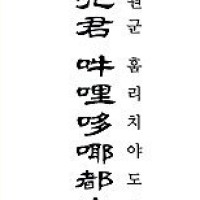 君吽哩哆㖿都
원군 훔리치야도